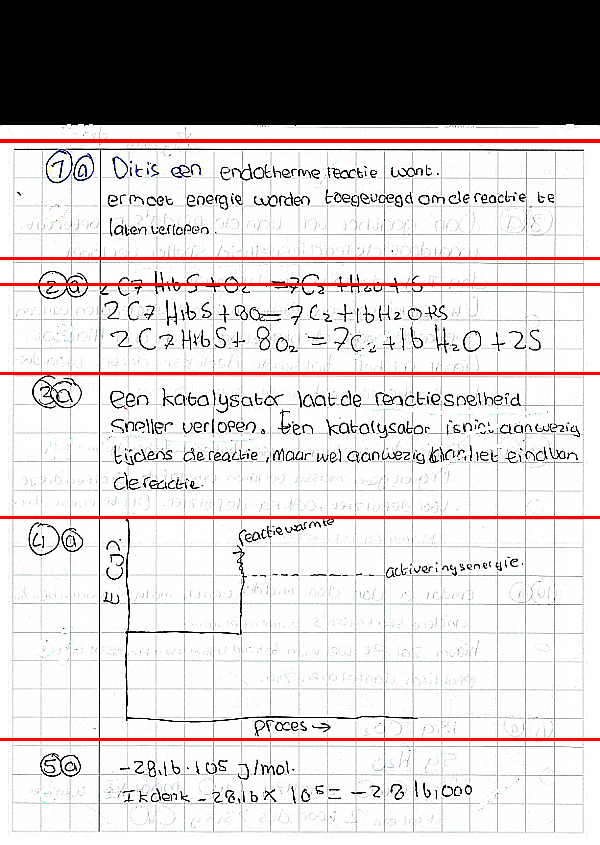 1 a Dit is een endotherme reactie want.
er moet energie worden toegevoegd om de reactie te
laten verlopen.
2 a 2 C7 H16 S + O2 = 7C2 + H2O + S
2 C7 H16 S + 8O2 = 7 C2 + 16 H2O + 2S
2 C7 H16 S + 8 O2 = 7 C2 + 16 H2O + 2S
3 a Een katalysator laat de reactiesnelheid
sneller verlopen. Een katalysator is niet aanwezig
tijdens de reactie, maar wel aanwezig het eind van
de reactie.
4 a reactiewarmte
E (J).
activeringsenergie.
proces →
5 a -28,16 · 10^5 J/mol.
Ik denk -28,16 × 10^5 = -2816,000